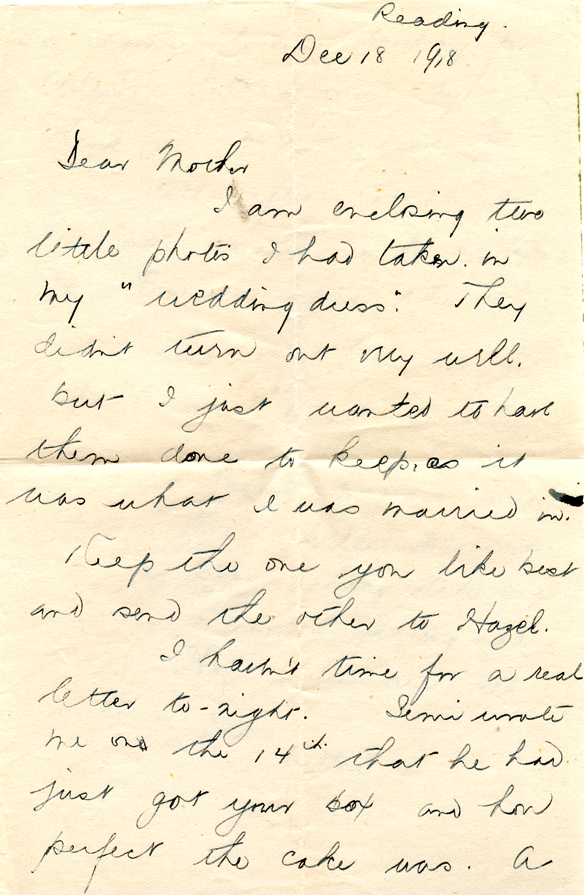 Reading.
Dec 18 1918
Dear Mother
I am enclosing two
little photos I had taken in
my "wedding dress". They
didn't turn out very well.
but I just wanted to have
them done to keep, as it
was what I was married in.
Keep the one you like best
and send the other to Hazel.
I hasn't time for a real
letter to-night. wrote
me on the 14th that he had
just got your box and how
perfect the cake was. A